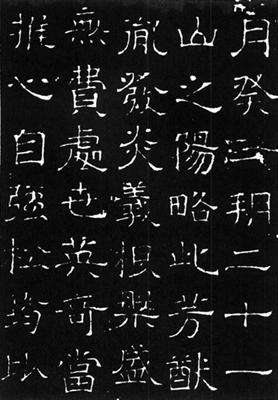 月癸朔二十一
山之陽略此芳猷
胤發炎羲根盛
無費處也英奇當
推心自強松筠比